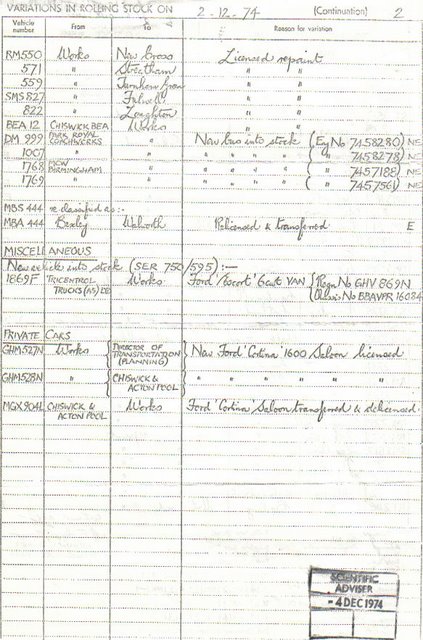 VARIATIONS IN ROLLING STOCK ON 2-12-74 (Continuation) 2
Vehicle number From To Reason for variation
RM550 Works New Cross Licensed repaint
571 " Streatham " "
559 " Turnham Green " "
SMS 827 " Fulwell " "
822 " Loughton " "
BEA 12 CHISWICK BEA Works
DM 999 PARK ROYAL COACHWORKS " New bus into stock (Eng No 7458280) NE
1007 " " " " " " ( " 7458278) NE
1768 MCW BIRMINGHAM " " " " " ( " 7457188) NE
1769 " " " " " " ( " 745756) NE
MBS 444 re classified as:-
MBA 444 Bexley Walworth Relicensed & transferred E
MISCELLANEOUS
New vehicle into stock (SER 750/595) :-
1869F TRICENTROL TRUCKS Works Ford 'Escort' 6cwt VAN { Regn No GHV 869N
Chassis No BBAVPR 16084
PRIVATE CARS
GHM527N Works { DIRECTOR OF TRANSPORTATION (PLANNING) } New Ford 'Cortina' 1600 Saloon licensed
GHM528N " { CHISWICK & ACTON POOL } " " " " " "
MGX 904L CHISWICK & ACTON POOL Works Ford 'Cortina' Saloon transferred & delicensed.
SCIENTIFIC
ADVISER
-4 DEC 1974